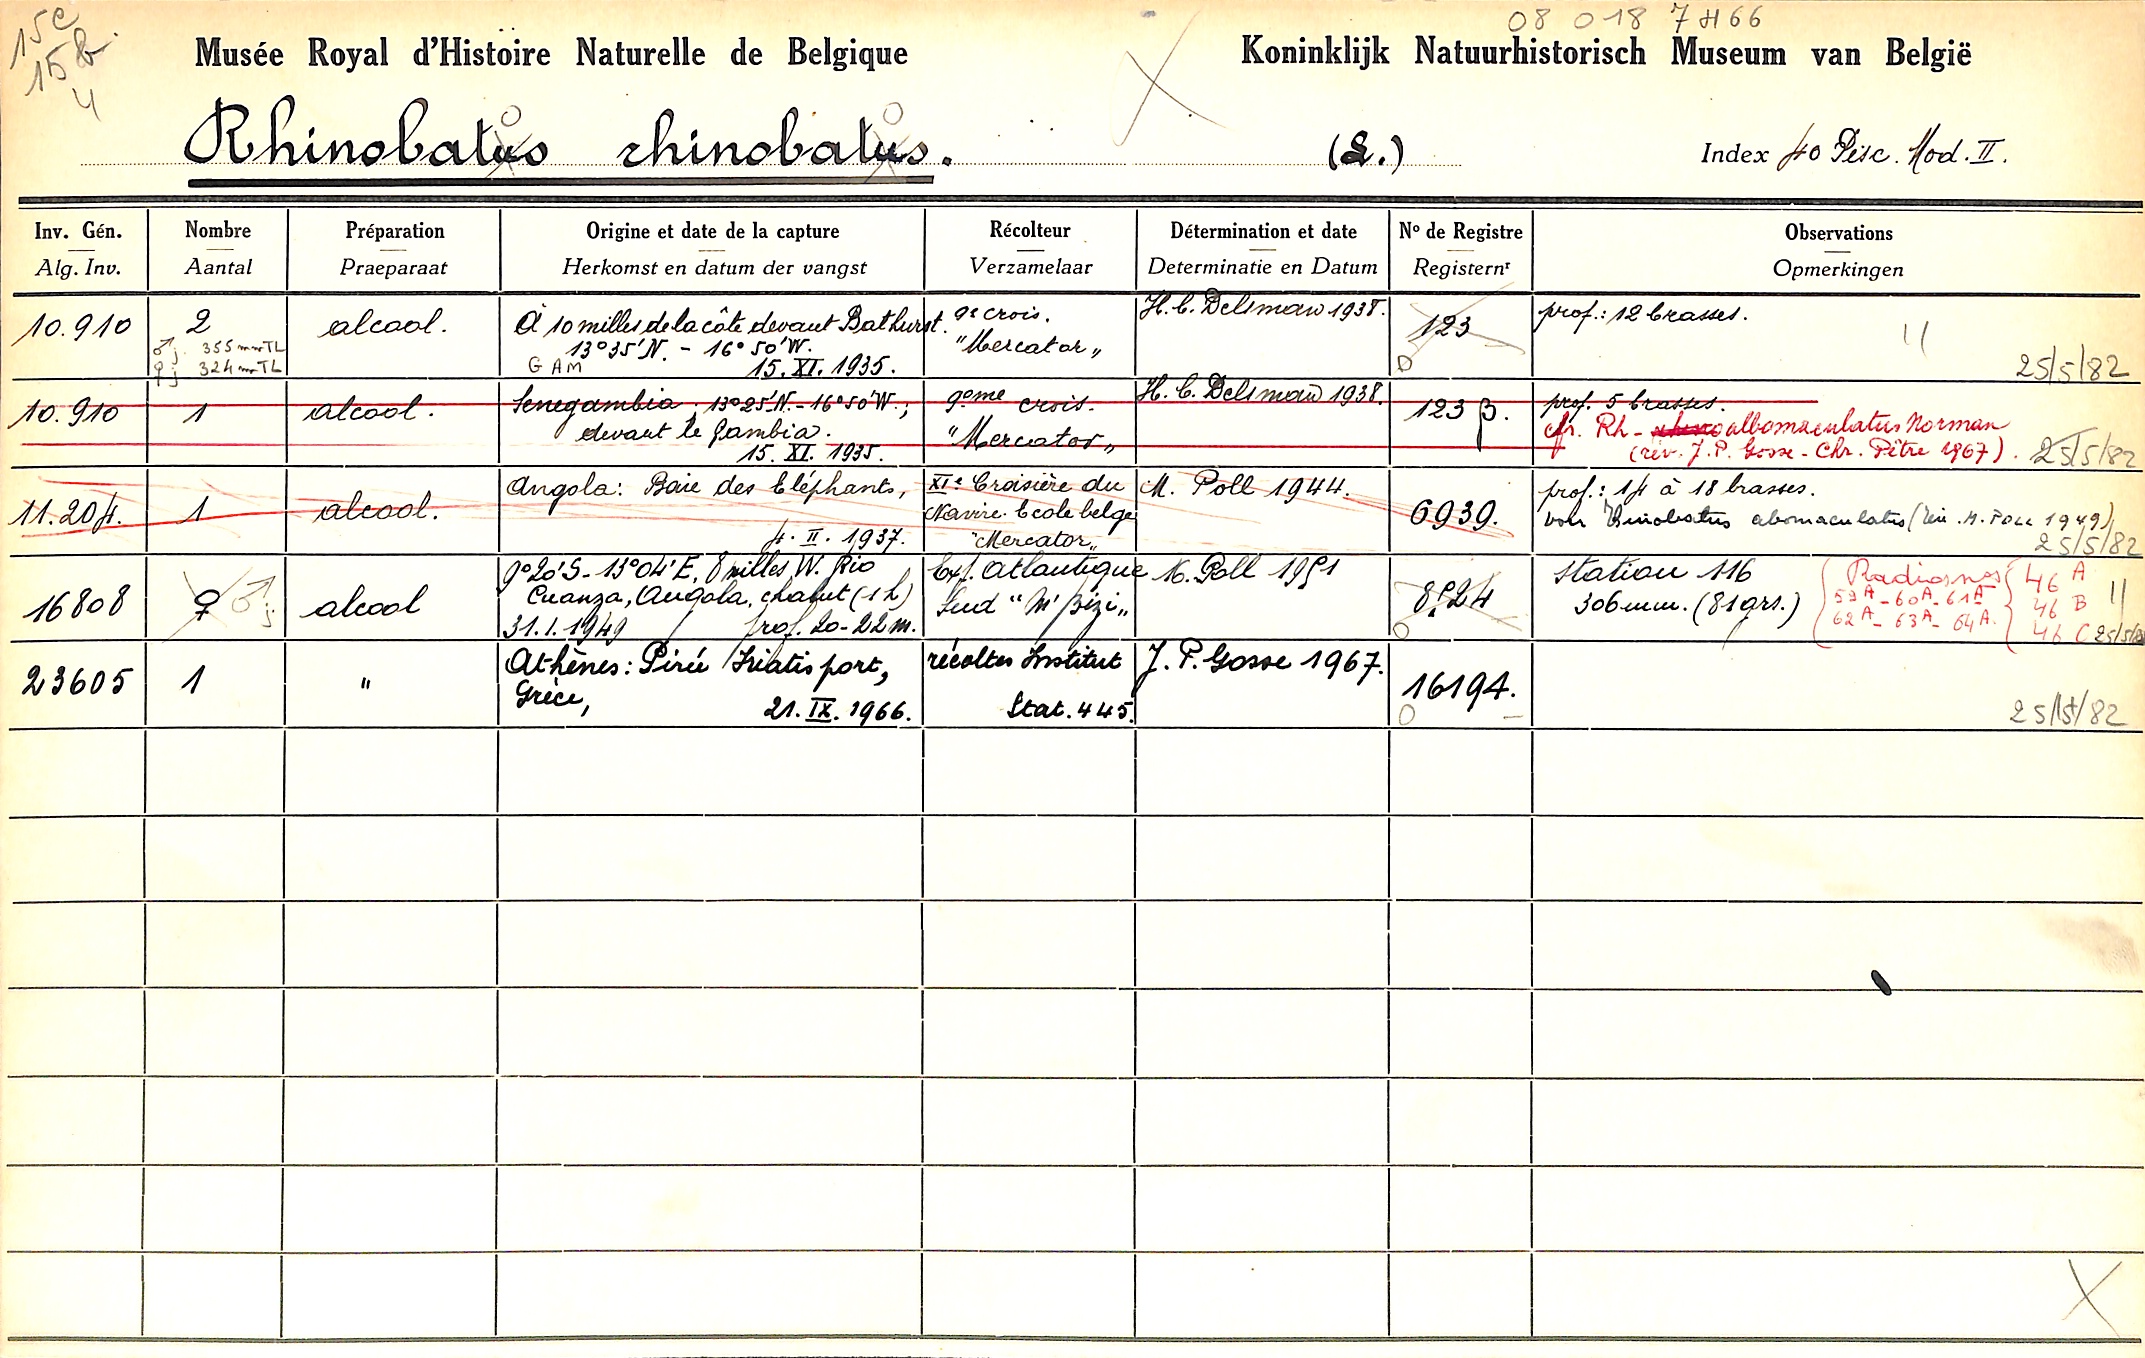 15c
15b.
4
08 018 7466
Musée Royal d'Histoire Naturelle de Belgique
Koninklijk Natuurhistorisch Museum van België
Rhinobatus rhinobatus. (L.)
o o
Index 40 Pisc. Mod. II.
Inv. Gén. Nombre Préparation Origine et date de la capture Récolteur Détermination et date Nº de Registre Observations
Alg. Inv. Aantal Praeparaat Herkomst en datum der vangst Verzamelaar Determinatie en Datum Registernr Opmerkingen
10.910 2 alcool. À 10 milles de la côte devant Bathurst. 9e crois. H. C. Delsman 1938. 123 prof.: 12 brasses.
♂ j. 355 mm TL 13°35'N. - 16°50'W. "Mercator"
♀ j 324 mm TL GAM 15. XI. 1935. 25/5/82
10.910 1 alcool. Senegambia; 13°25'N. - 16°50'W.; 9eme crois. H. C. Delsman 1938. 123 β. prof. 5 brasses.
devant le Gambia. "Mercator" cfr. Rh- albomaculatus Norman
15. XI. 1935. (rév. J. P. Gosse - Chr. Pêtre 1967). 25/5/82
11.204. 1 alcool. Angola: Baie des Eléphants, XIe Croisière du M. Poll 1944. 6939. prof.: 14 à 18 brasses.
Navire Ecole belge voir Rhinobatus abomaculatus (M. POLL 1949)
4. II. 1937. "Mercator" 25/5/82
16808 ♀ ♂ j alcool 9°20'S - 13°04'E, 8 milles W. Rio Exp. Atlantique M. Poll 1951 8524 station 116
Cuanza, Angola, chalut (1 h) Sud "M'Bizi" 306 mm. (81 grs.)
31.1.1949 prof. 20-22 m.
Radios nos 46 A
59A - 60A - 61A 46 B
62A - 63A - 64A. 46 C 25/5/82
23605 1 " Athènes: Pirée Kriatis port, récoltes Institut J. P. Gosse 1967. 16194.
Grèce, 21. IX. 1966. Stat. 445. 25/5/82